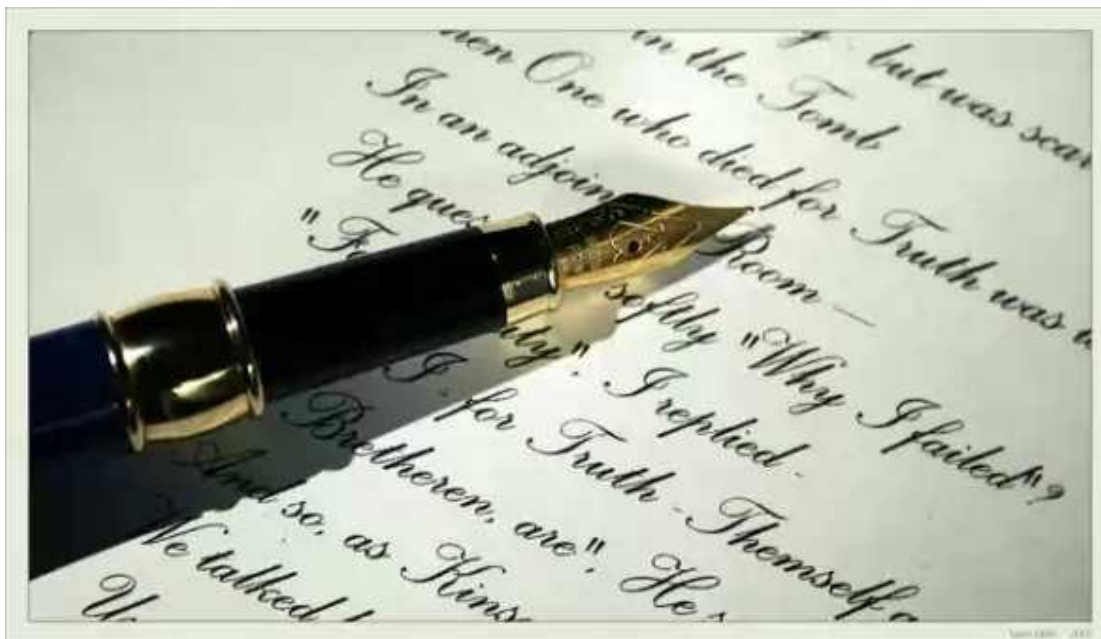 - but was scar
in the Tomb
hen One who died for Truth was
In an adjoin Room —
He ques softly "Why I failed"?
"Fo ity", I replied -
I - for Truth - Themself
Bretheren, are", He
And so, as Kins
We talked